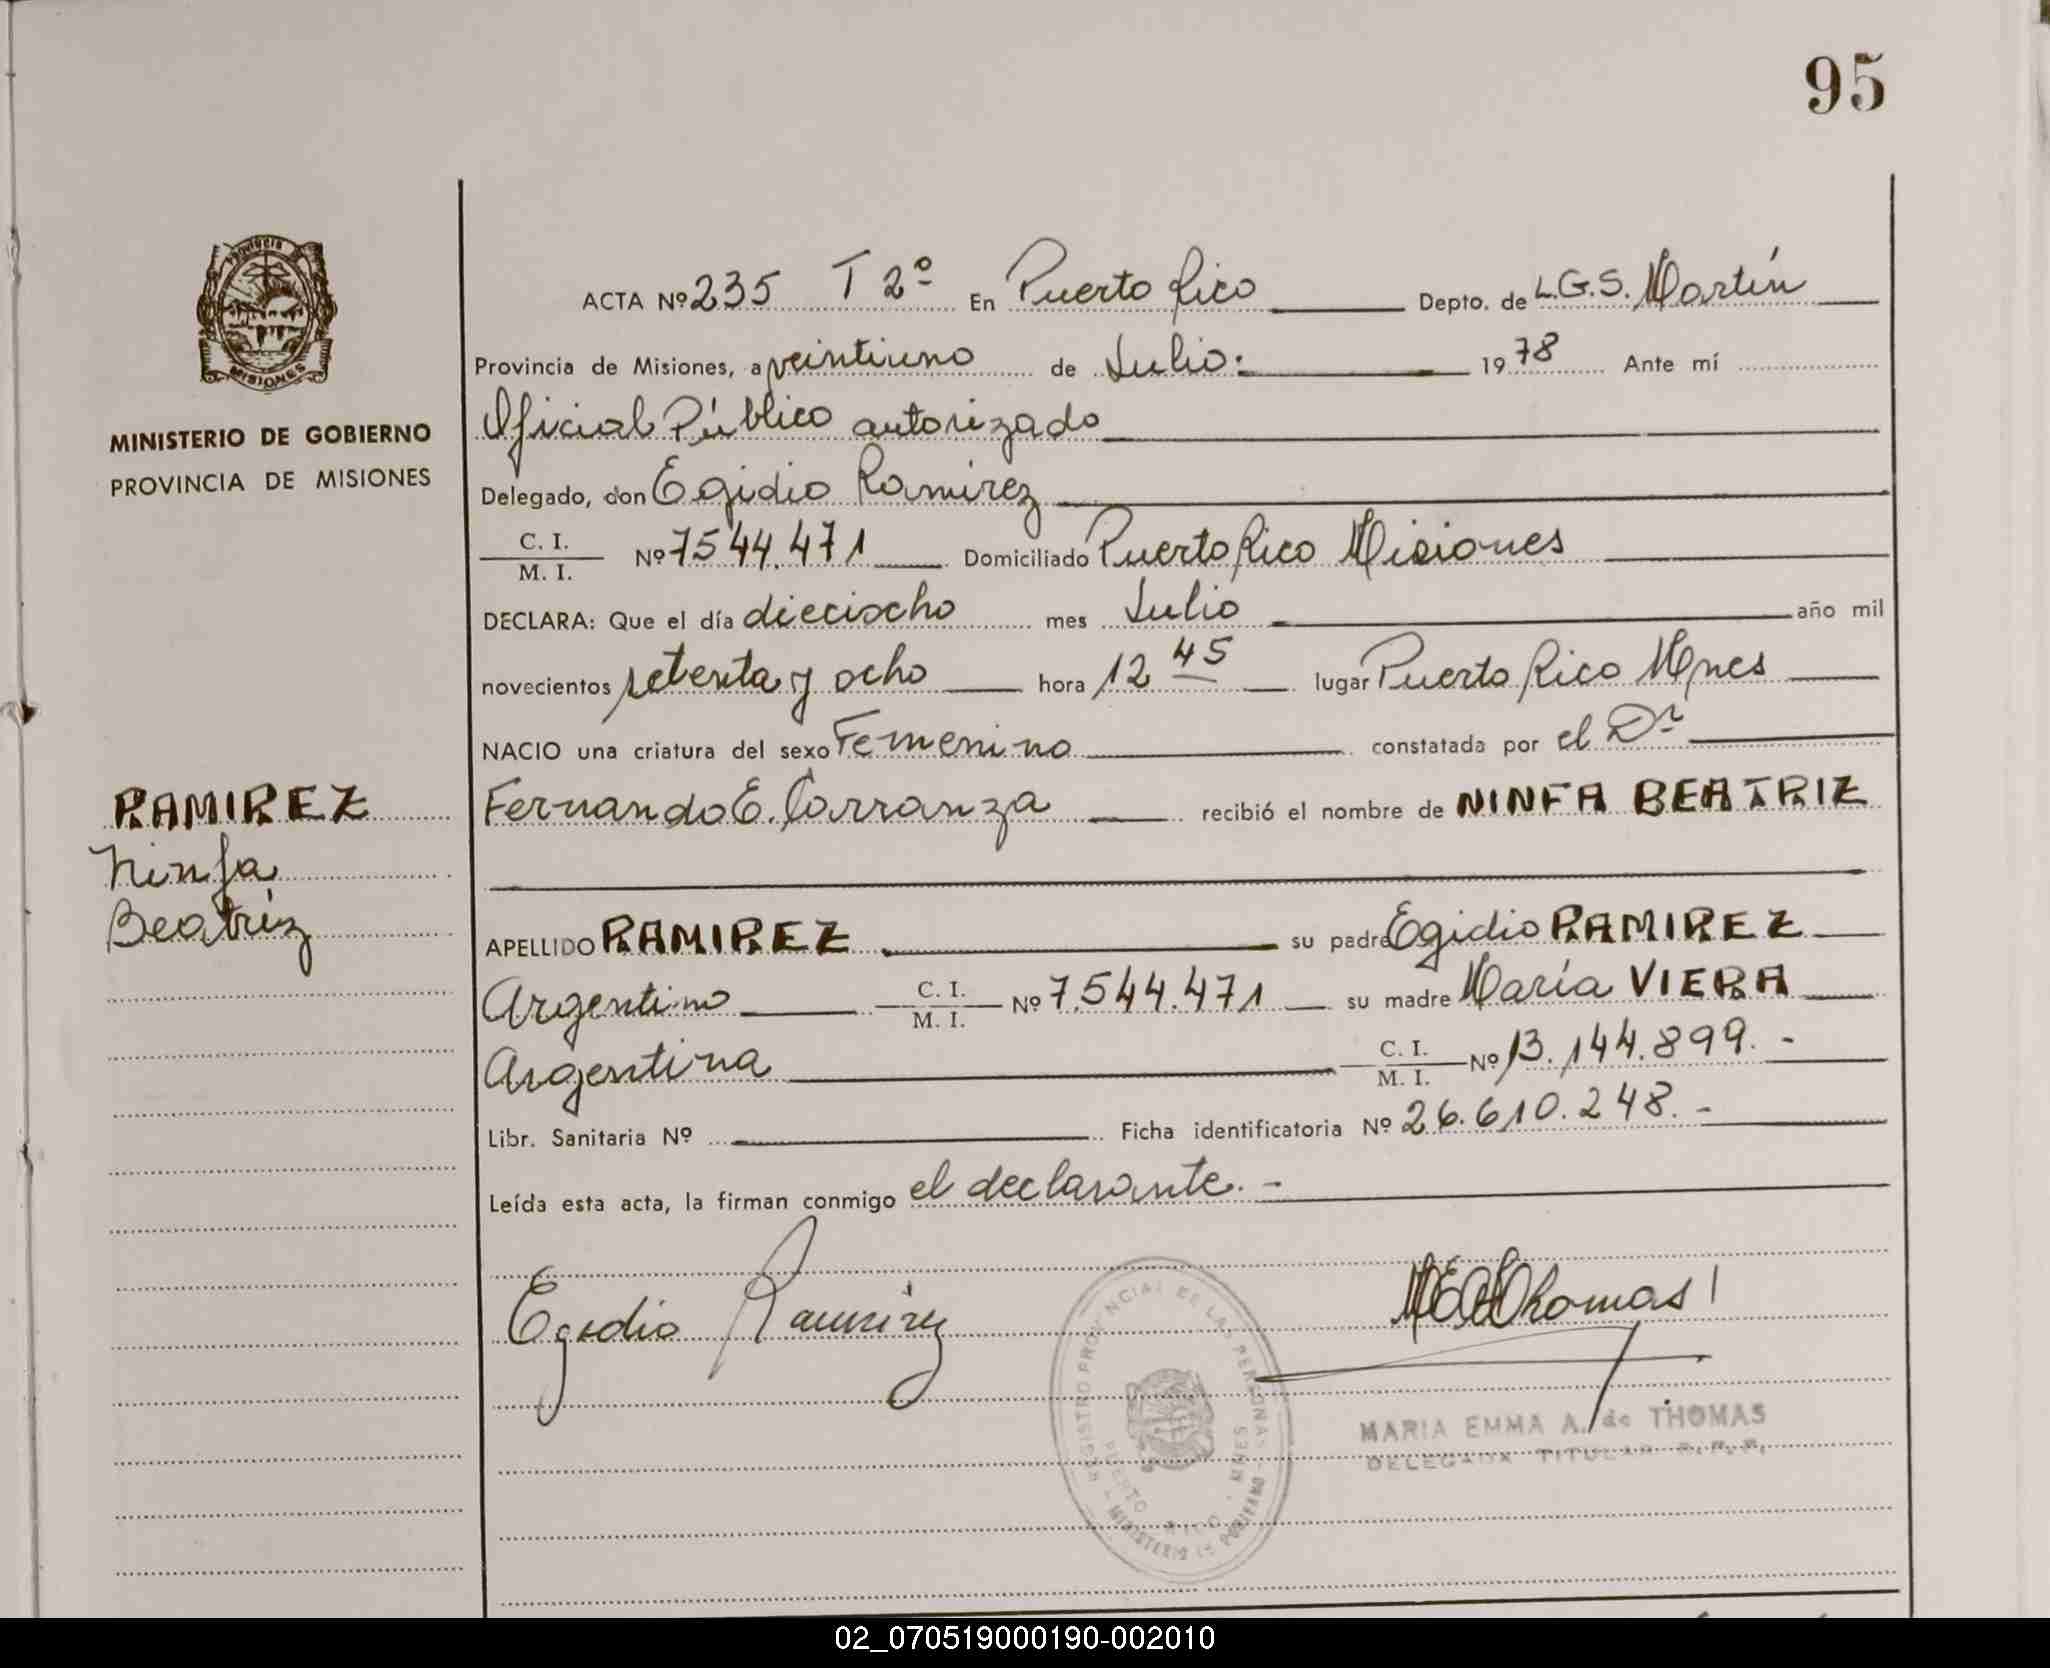 95
Provincia
MISIONES
MINISTERIO DE GOBIERNO
PROVINCIA DE MISIONES
RAMIREZ
Ninfa
Beatríz
ACTA Nº 235 T 2º En Puerto Rico Depto. de L.G.S. Martín
Provincia de Misiones, a veintiuno de Julio. 1978 Ante mí
Oficial Público autorizado
Delegado, don Egidio Ramirez
C. I. / M. I. Nº 7544.471 Domiciliado Puerto Rico Misiones
DECLARA: Que el día dieciocho mes Julio año mil
novecientos setenta y ocho hora 12 45 lugar Puerto Rico Mnes
NACIO una criatura del sexo Femenino constatada por el Dr
Fernando E. Carranza recibió el nombre de NINFA BEATRIZ
APELLIDO RAMIREZ su padre Egidio RAMIREZ
Argentino C. I. / M. I. Nº 7.544.471 su madre María VIERA
Argentina C. I. / M. I. Nº 13.144.899. -
Libr. Sanitaria Nº Ficha identificatoria Nº 26.610.248. -
Leída esta acta, la firman conmigo el declarante. -
Egidio Ramirez
Thomas
REGISTRO PROVINCIAL DE LAS PERSONAS - MINISTERIO DE GOBIERNO -
PUERTO RICO - MNES
MARIA EMMA A. de THOMAS
DELEGADA TITULAR R. P. P.
02_070519000190-002010